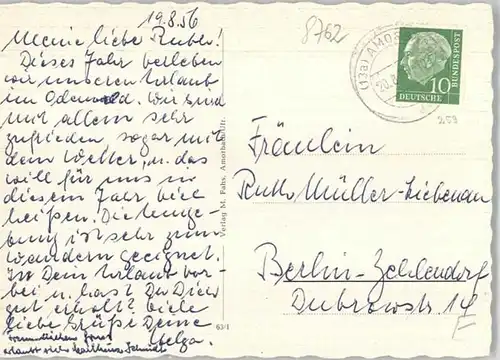 19.8.56
Meine liebe Ruth!
Dieses Jahr verleben
wir unseren Urlaub
im Odenwald. Wir sind
mit allem sehr
zufrieden sogar mit
dem Wetter, u. das
will für uns in
diesem Jahr viel
heißen. Die Umge-
bung ist sehr zum
wandern geeignet.
Ist Dein Urlaub vor-
bei u. hast Du Dich
gut erholt? Viele
liebe Grüße Deine
Helga.
Gruß
erlaubt sich Schmidt
Verlag M. Fahs, Amorbach
63/1
8762
(13a) AMOR
20.8.
10
DEUTSCHE
BUNDESPOST
Fräulein
Ruth Müller-Liebenau
Berlin-Zehlendorf
Dubrowstr. 14